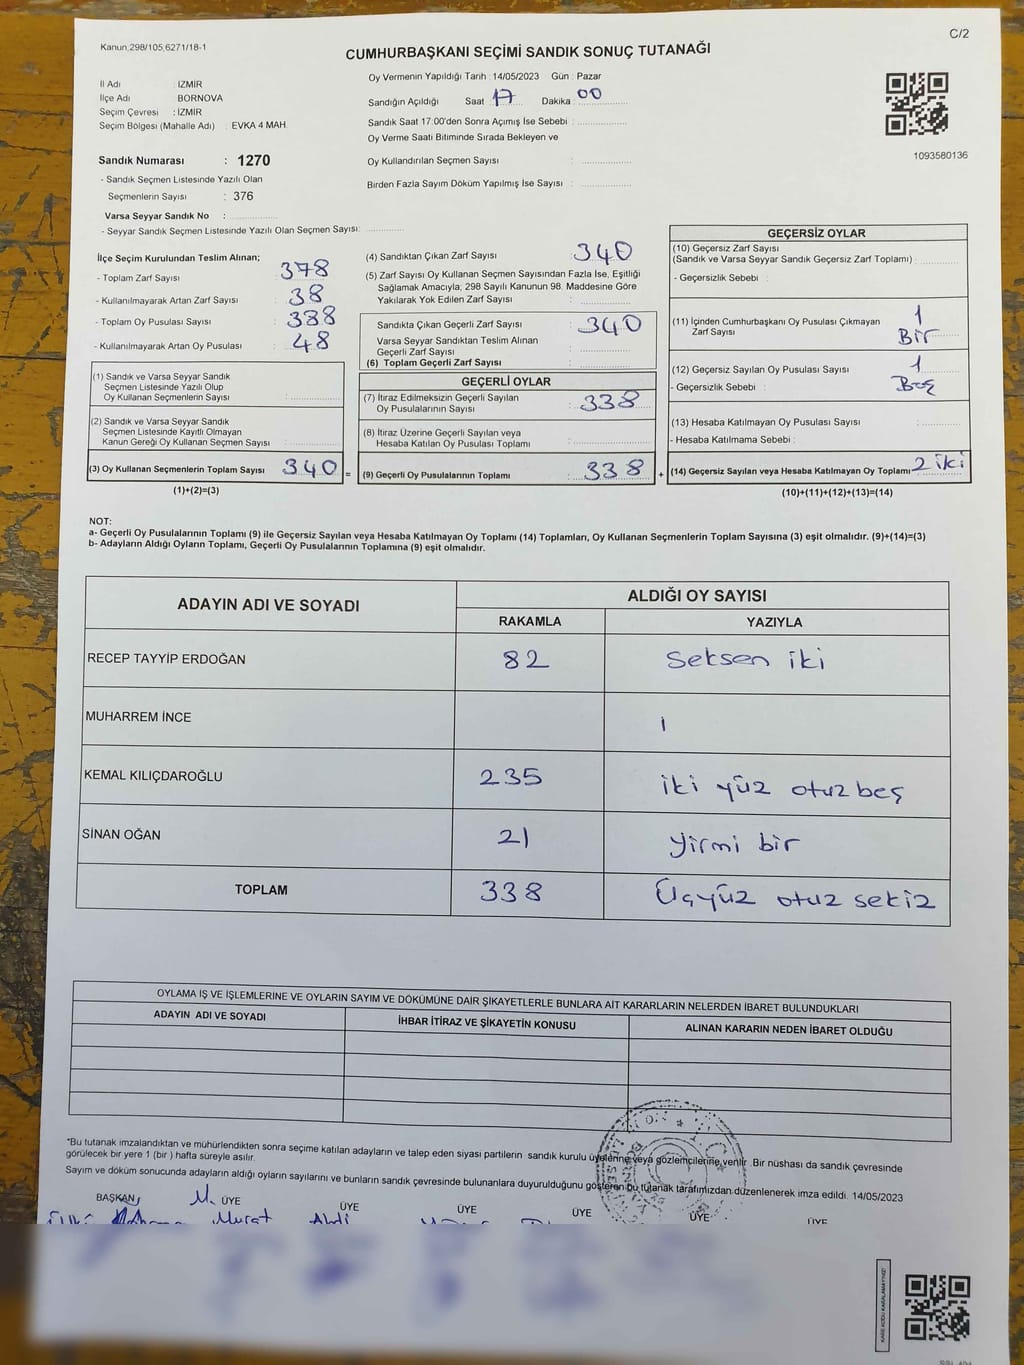 Kanun,298/105,6271/18-1
C/2
CUMHURBAŞKANI SEÇİMİ SANDIK SONUÇ TUTANAĞI
İl Adı : İZMİR
İlçe Adı BORNOVA
Seçim Çevresi : İZMİR
Seçim Bölgesi (Mahalle Adı) : EVKA 4 MAH.
Oy Vermenin Yapıldığı Tarih : 14/05/2023 Gün : Pazar
Sandığın Açıldığı Saat 17 Dakika 00
Sandık Saat 17:00'den Sonra Açımış İse Sebebi :
Oy Verme Saati Bitiminde Sırada Bekleyen ve
Oy Kullandırılan Seçmen Sayısı :
Birden Fazla Sayım Döküm Yapılmış İse Sayısı :
1093580136
Sandık Numarası : 1270
- Sandık Seçmen Listesinde Yazılı Olan
Seçmenlerin Sayısı : 376
Varsa Seyyar Sandık No :
- Seyyar Sandık Seçmen Listesinde Yazılı Olan Seçmen Sayısı:
İlçe Seçim Kurulundan Teslim Alınan;
- Toplam Zarf Sayısı : 378
- Kullanılmayarak Artan Zarf Sayısı : 38
- Toplam Oy Pusulası Sayısı : 388
- Kullanılmayarak Artan Oy Pusulası : 48
(1) Sandık ve Varsa Seyyar Sandık
Seçmen Listesinde Yazılı Olup
Oy Kullanan Seçmenlerin Sayısı :
(2) Sandık ve Varsa Seyyar Sandık
Seçmen Listesinde Kayıtlı Olmayan
Kanun Gereği Oy Kullanan Seçmen Sayısı :
(3) Oy Kullanan Seçmenlerin Toplam Sayısı 340 =
(1)+(2)=(3)
(4) Sandıktan Çıkan Zarf Sayısı : 340
(5) Zarf Sayısı Oy Kullanan Seçmen Sayısından Fazla İse, Eşitliği
Sağlamak Amacıyla, 298 Sayılı Kanunun 98. Maddesine Göre
Yakılarak Yok Edilen Zarf Sayısı :
Sandıkta Çıkan Geçerli Zarf Sayısı : 340
Varsa Seyyar Sandıktan Teslim Alınan
Geçerli Zarf Sayısı :
(6) Toplam Geçerli Zarf Sayısı :
GEÇERLİ OYLAR
(7) İtiraz Edilmeksizin Geçerli Sayılan
Oy Pusulalarının Sayısı : 338
(8) İtiraz Üzerine Geçerli Sayılan veya
Hesaba Katılan Oy Pusulası Toplamı :
(9) Geçerli Oy Pusulalarının Toplamı : 338 +
GEÇERSİZ OYLAR
(10) Geçersiz Zarf Sayısı
(Sandık ve Varsa Seyyar Sandık Geçersiz Zarf Toplamı) :
- Geçersizlik Sebebi :
(11) İçinden Cumhurbaşkanı Oy Pusulası Çıkmayan 1
Zarf Sayısı Bir
(12) Geçersiz Sayılan Oy Pusulası Sayısı : 1
- Geçersizlik Sebebi :
(13) Hesaba Katılmayan Oy Pusulası Sayısı :
- Hesaba Katılmama Sebebi :
(14) Geçersiz Sayılan veya Hesaba Katılmayan Oy Toplamı 2 iki
(10)+(11)+(12)+(13)=(14)
NOT:
a- Geçerli Oy Pusulalarının Toplamı (9) ile Geçersiz Sayılan veya Hesaba Katılmayan Oy Toplamı (14) Toplamları, Oy Kullanan Seçmenlerin Toplam Sayısına (3) eşit olmalıdır. (9)+(14)=(3)
b- Adayların Aldığı Oyların Toplamı, Geçerli Oy Pusulalarının Toplamına (9) eşit olmalıdır.
ADAYIN ADI VE SOYADI ALDIĞI OY SAYISI
RAKAMLA YAZIYLA
RECEP TAYYİP ERDOĞAN 82 Seksen iki
MUHARREM İNCE
KEMAL KILIÇDAROĞLU 235 iki yüz otuz beş
SİNAN OĞAN 21 Yirmi bir
TOPLAM 338 Üçyüz otuz sekiz
OYLAMA İŞ VE İŞLEMLERİNE VE OYLARIN SAYIM VE DÖKÜMÜNE DAİR ŞİKAYETLERLE BUNLARA AİT KARARLARIN NELERDEN İBARET BULUNDUKLARI
ADAYIN ADI VE SOYADI İHBAR İTİRAZ VE ŞİKAYETİN KONUSU ALINAN KARARIN NEDEN İBARET OLDUĞU
"Bu tutanak imzalandıktan ve mühürlendikten sonra seçime katılan adayların ve talep eden siyasi partilerin sandık kurulu üyelerine veya gözlemcilerine verilir. Bir nüshası da sandık çevresinde
görülecek bir yere 1 (bir ) hafta süreyle asılır.
Sayım ve döküm sonucunda adayların aldığı oyların sayılarını ve bunların sandık çevresinde bulunanlara duyurulduğunu gösteren bu tutanak tarafımızdan düzenlenerek imza edildi. 14/05/2023
BAŞKAN M. ÜYE ÜYE ÜYE ÜYE ÜYE ÜYE
Murat